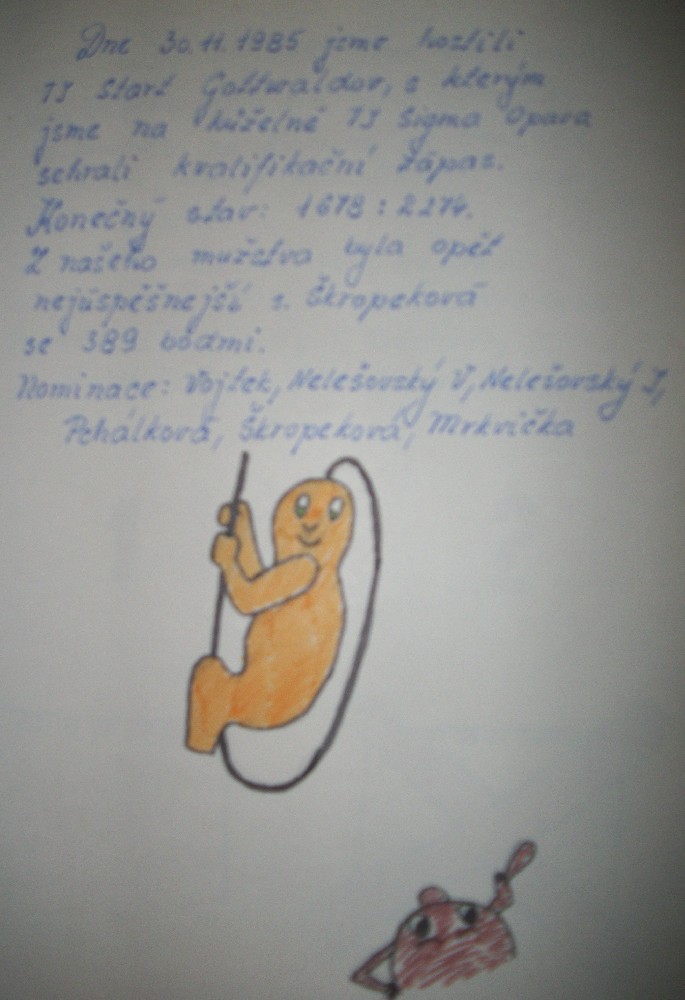 Dne 30.11.1985 jsme hostili
TJ Start Gottwaldov, s kterým
jsme na kuželně TJ Sigma Opava
sehráli kvalifikační zápas.
Konečný stav: 1678 : 2274.
Z našeho mužstva byla opět
nejúspěšnejší s. Škropeková
se 389 bodmi.
Nominace: Vojtek, Nelešovský V, Nelešovský J,
Pchálková, Škropeková, Mrkvička